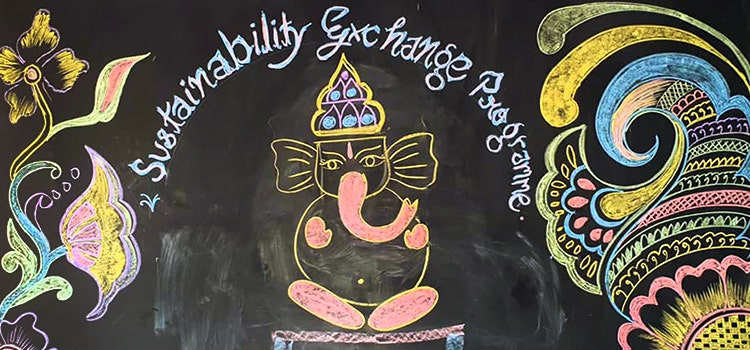 Sustainability Exchange Programme.